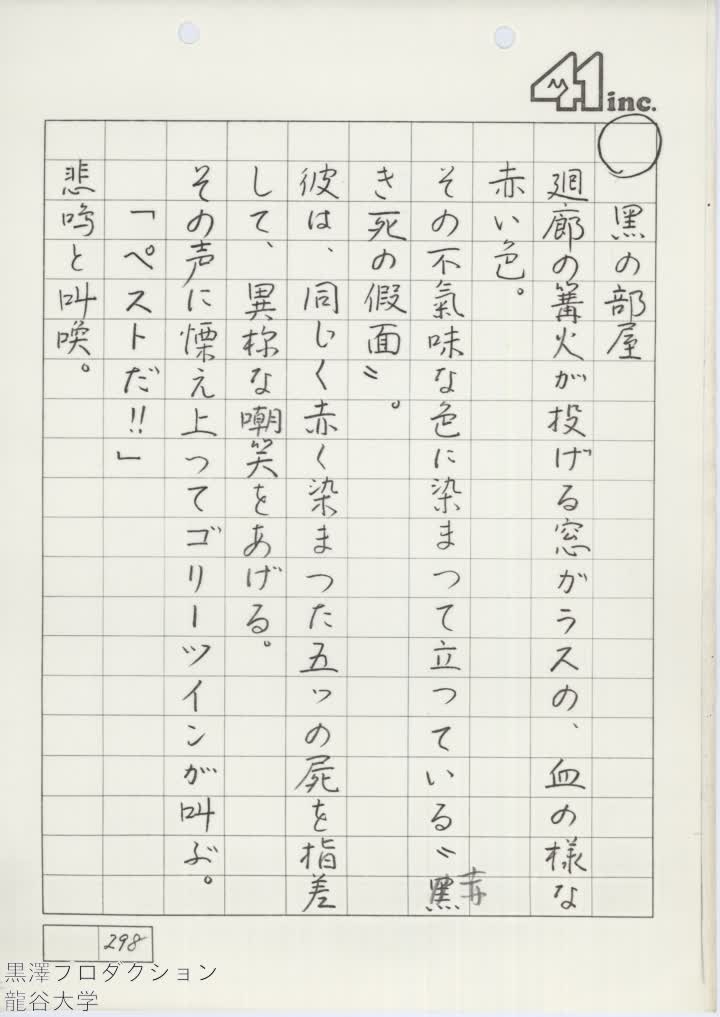 41 inc.
黒の部屋
廻廊の篝火が投げる窓がラスの、血の様な
赤い色。
その不氣味な色に染まつて立つている〝黒赤
き死の假面〟。
彼は、同じく赤く染まつた五ッの屍を指差
して、異様な嘲笑をあげる。
その声に慄え上つてゴリーツインが叫ぶ。
「ペストだ!!」
悲鳴と叫喚。
298
黒澤プロダクション
龍谷大学